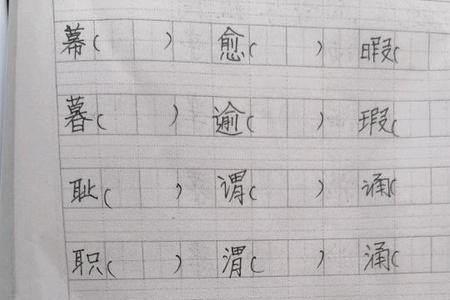 幕（ ） 愈（ ） 暇（
暮（ ） 逾（ ） 瑕（
耻（ ） 谓（ ） 诵（
职（ ） 渭（ ） 涌（